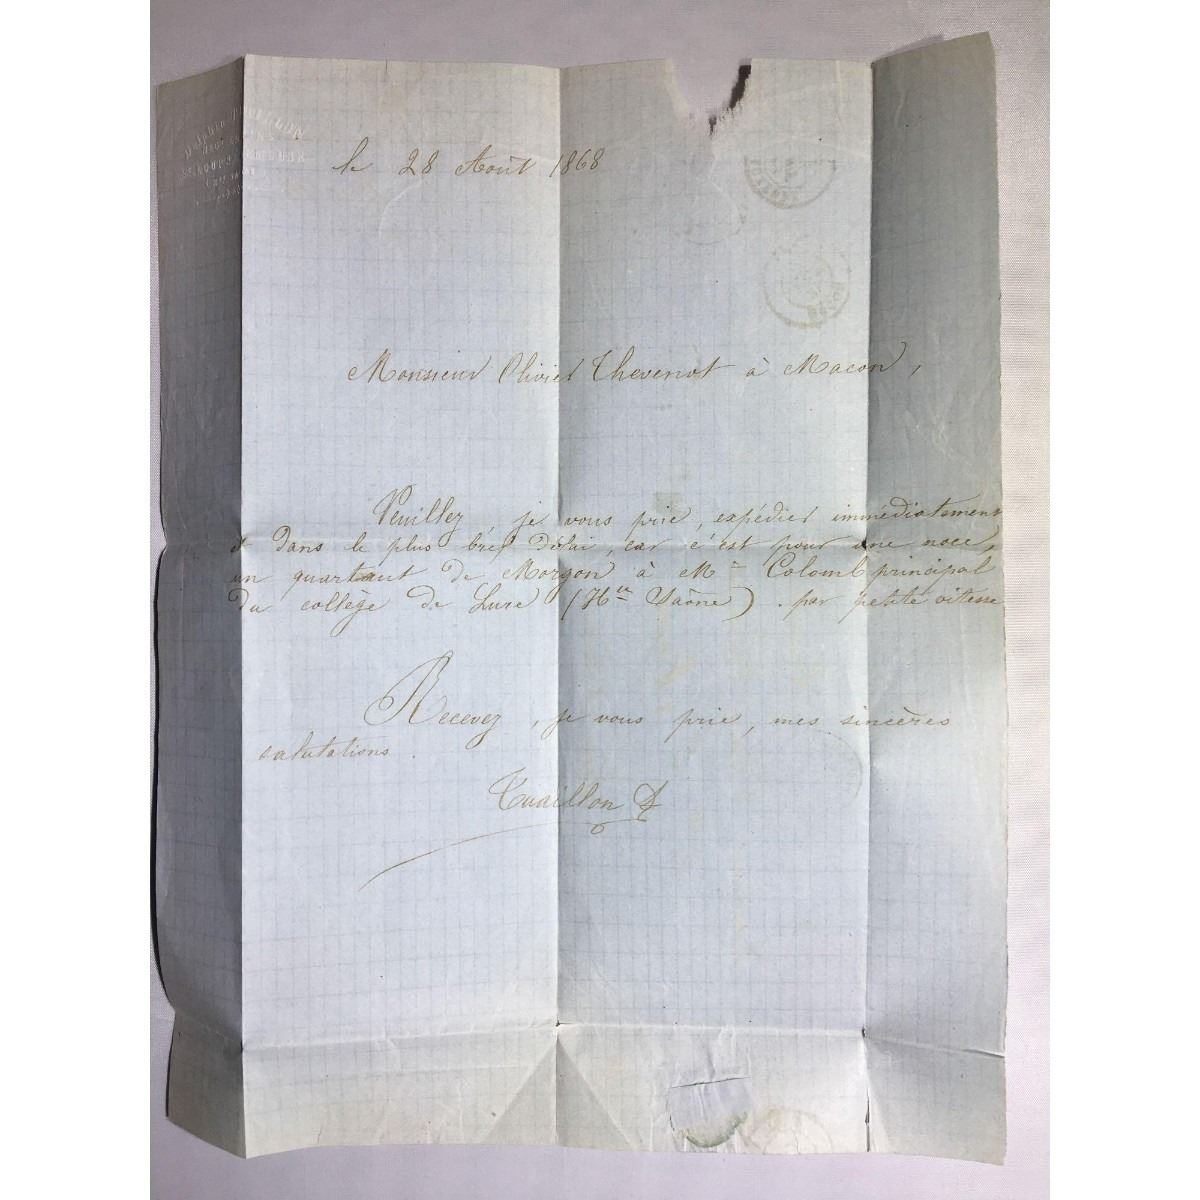 le 28 Août 1868
Monsieur Olivier Thevenot à Macon,
Veuillez, je vous prie, expédier immédiatement
et dans le plus bref délai, car c'est pour une noce,
un quartaut de Morgon à Mr Colomb principal
du collège de Lure (Hte Saône). par petite vitesse
Recevez, je vous prie, mes sincères
salutations.
Tuaillon
MACON